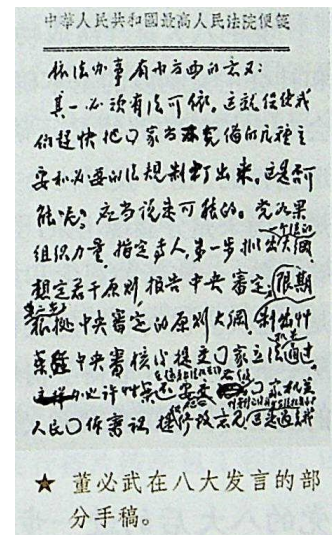 中華人民共和國最高人民法院便箋
依法办事有两方面的意义：
其一必须有法可依。这就促使我
们赶快把囗家尚不完备的几种主
要和必要的法规制订出来。这是否可
能呢？应当说是可能的。党如果
组织力量，指定专人，第一步拟出
大纲
想定若干原则，报告中央审定；限期
第二步
根据中央审定的原则大纲，制出草
案经中央审核以提交囗家立法
机关
通过
囗家机关
人民囗体
修改意见
★ 董必武在八大发言的部
分手稿。